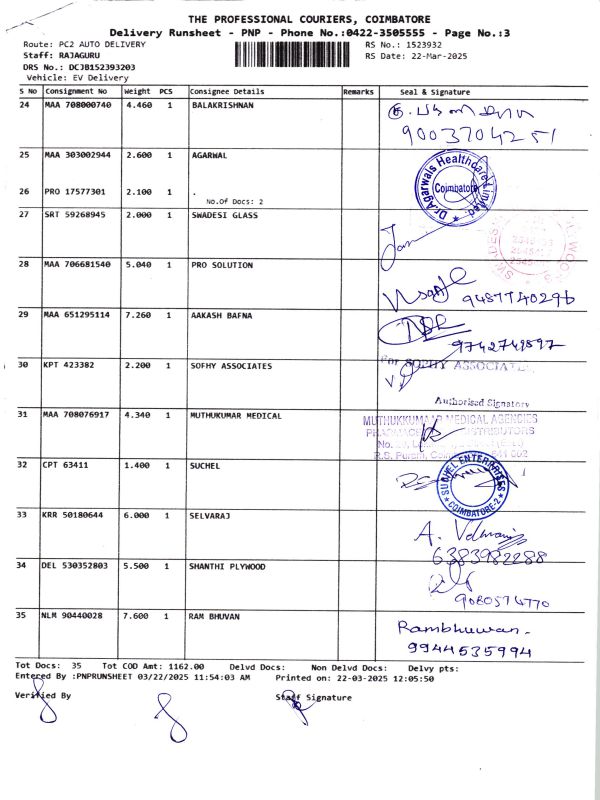 THE PROFESSIONAL COURIERS, COIMBATORE
Delivery Runsheet - PNP - Phone No.:0422-3505555 - Page No.:3
Route: PC2 AUTO DELIVERY
RS No.: 1523932
Staff: RAJAGURU
RS Date: 22-Mar-2025
DRS No.: DCJB152393203
Vehicle: EV Delivery
S No Consignment No Weight PCS Consignee Details Remarks Seal & Signature
24 MAA 708000740 4.460 1 BALAKRISHNAN
9003704251
25 MAA 303002944 2.600 1 AGARWAL
Dr.Agarwals Healthcare Limited
Coimbatore
26 PRO 17577301 2.100 1 .
No.Of Docs: 2
27 SRT 59268945 2.000 1 SWADESI GLASS
28 MAA 706681540 5.040 1 PRO SOLUTION
9487740296
29 MAA 651295114 7.260 1 AAKASH BAFNA
9742749897
30 KPT 423382 2.200 1 SOFHY ASSOCIATES
For SOFHY ASSOCIATES
Authorised Signatory
31 MAA 708076917 4.340 1 MUTHUKUMAR MEDICAL
MUTHUKKUMAAR MEDICAL AGENCIES
32 CPT 63411 1.400 1 SUCHEL
SUCHEL ENTERPRISES
COIMBATORE-2
33 KRR 50180644 6.000 1 SELVARAJ
6383982288
34 DEL 530352803 5.500 1 SHANTHI PLYWOOD
9080574770
35 NLM 90440028 7.600 1 RAM BHUVAN
Rambhuwan.
9944535994
Tot Docs: 35 Tot COD Amt: 1162.00 Delvd Docs: Non Delvd Docs: Delvy pts:
Entered By :PNPRUNSHEET 03/22/2025 11:54:03 AM Printed on: 22-03-2025 12:05:50
Verified By Staff Signature